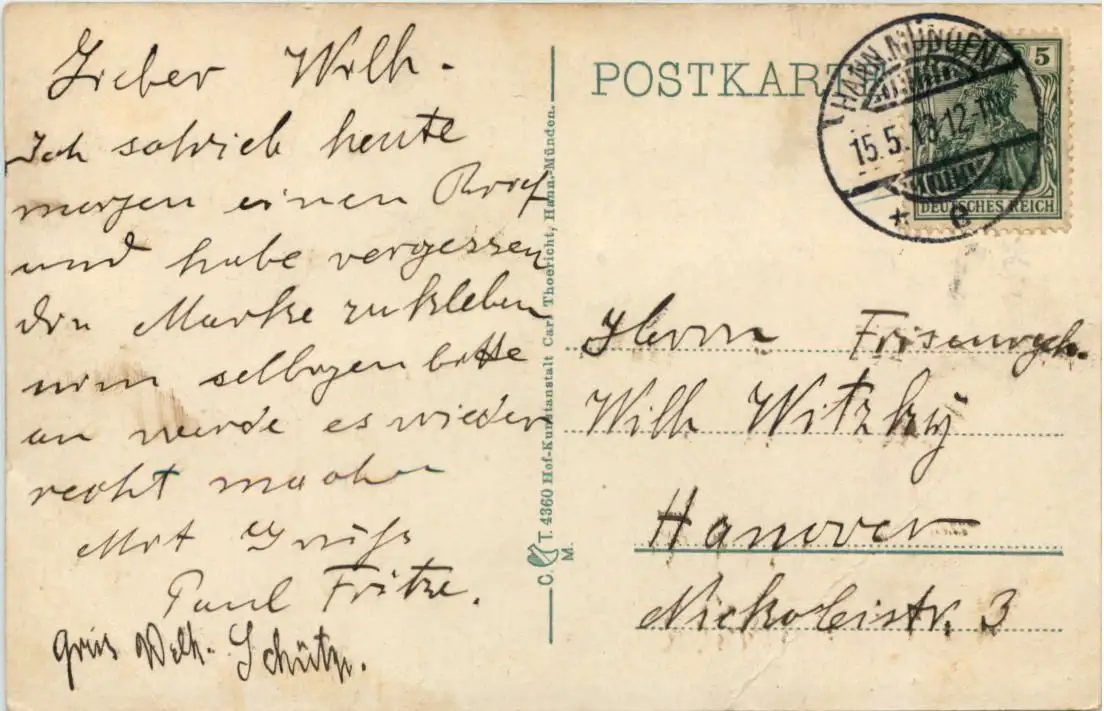 Lieber Wilh.
Ich schrieb heute
morgen einen Brief
und habe vergessen
die Marke zu kleben
nim selbigen bitte
an werde es wieder
recht machen
Mit Gruß
Paul Fritze.
Wilh. Schütze.
POSTKARTE
HANN. MÜNDEN
15.5.13.12-1N
* e
5
DEUTSCHES REICH
C. T. 4360 Hof-Kunstanstalt Carl Thoericht, Hann.-Münden.
M.
Herrn Friseurgeh.
Wilh Witzky
Hanover
Nickoleistr. 3